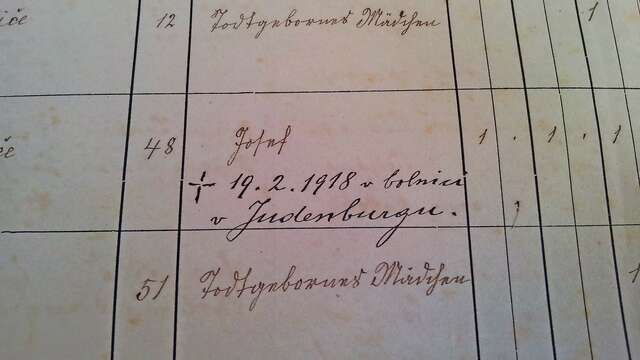 12 Todtgebornes Mädchen 1
48 Josef 1 . 1 . 1
+ 19. 2. 1918 v bolnici
v Judenburgu.
51 Todtgebornes Mädchen 1